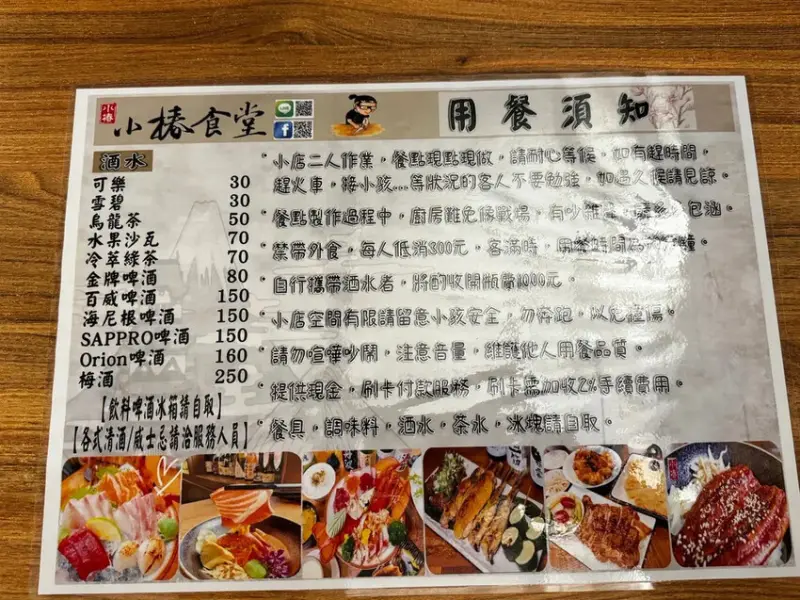 小椿
小椿食堂
LINE
用餐須知
酒水
可樂 30
雪碧 30
烏龍茶 50
水果沙瓦 70
冷萃綠茶 70
金牌啤酒 80
百威啤酒 150
海尼根啤酒 150
SAPPRO啤酒 150
Orion啤酒 160
梅酒 250
【飲料啤酒冰箱請自取】
【各式清酒/威士忌請洽服務人員】
小店二人作業，餐點現點現做，請耐心等候，如有趕時間，
趕火車，接小孩...等狀況的客人不要勉強，如過久候請見諒。
餐點製作過程中，廚房難免像戰場，有吵雜 包涵。
禁帶外食，每人低消300元，客滿時，用餐時間
自行攜帶酒水者，將酌收開瓶費1000元。
小店空間有限請留意小孩安全，勿奔跑，以免碰傷。
請勿喧嘩吵鬧，注意音量，維護他人用餐品質。
提供現金，刷卡付款服務，刷卡需加收2%手續費用。
餐具，調味料，酒水，茶水，冰塊請自取。